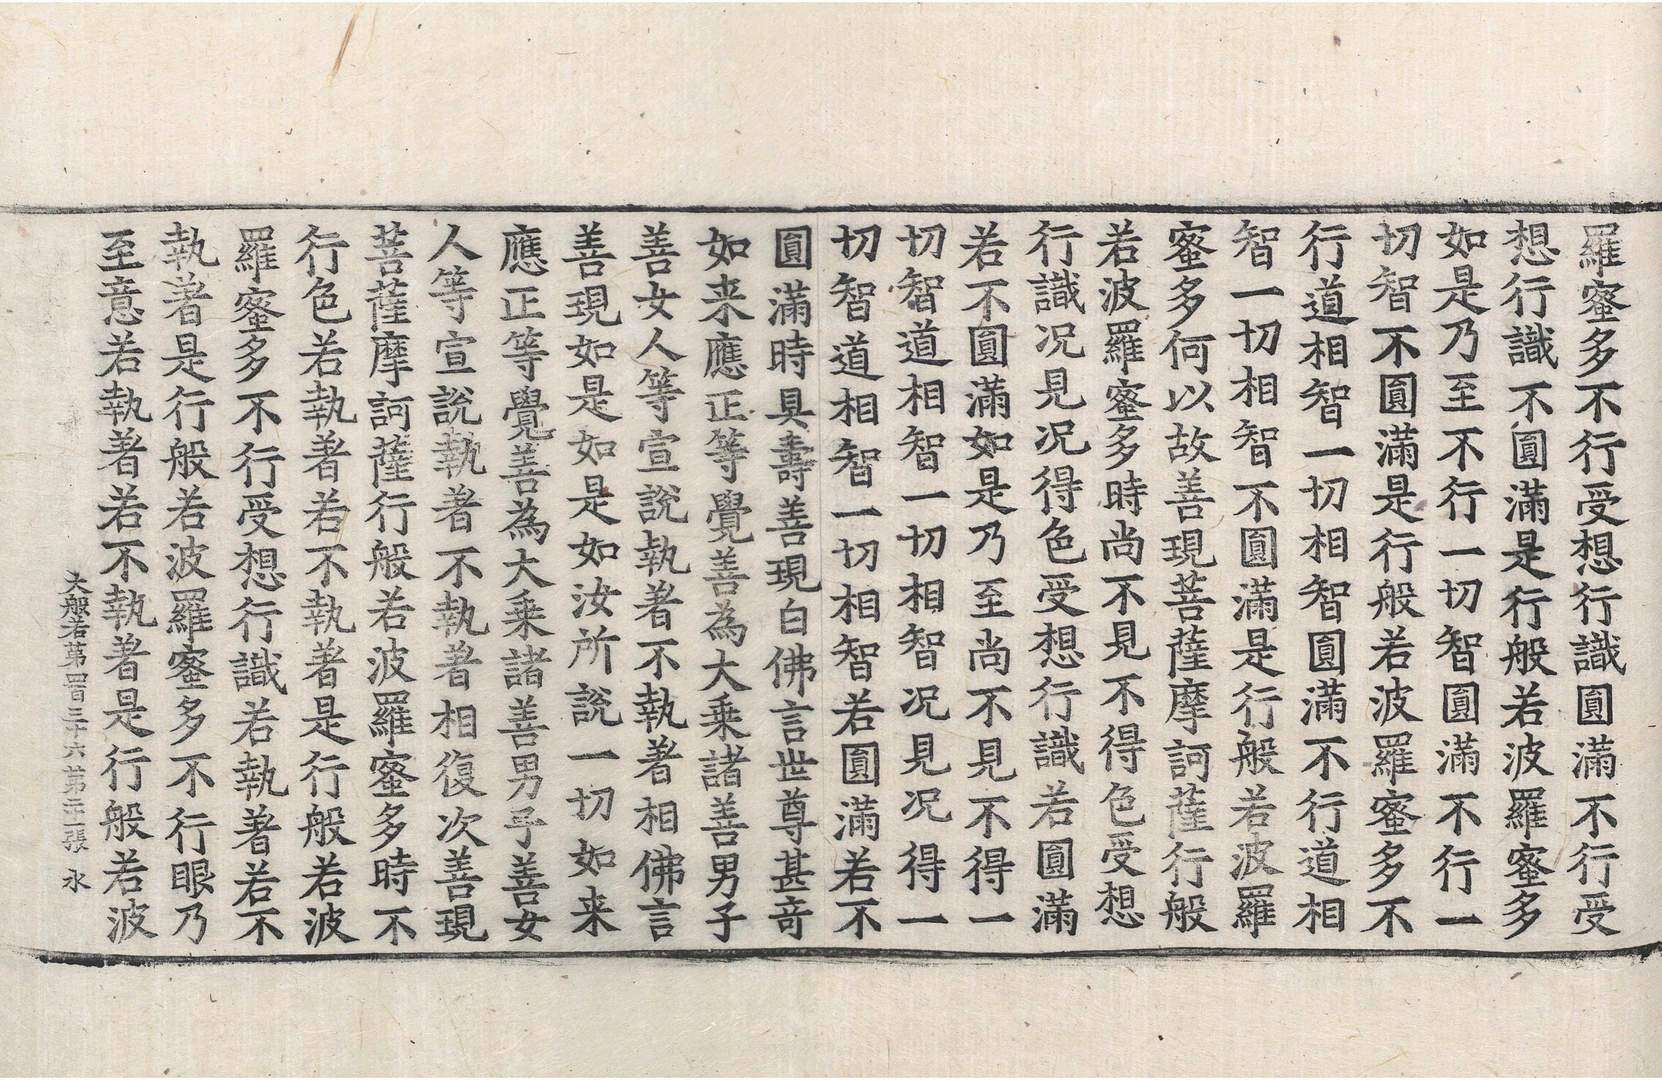 羅蜜多不行受想行識圓滿不行受
想行識不圓滿是行般若波羅蜜多
如是乃至不行一切智圓滿不行一
切智不圓滿是行般若波羅蜜多不
行道相智一切相智圓滿不行道相
智一切相智不圓滿是行般若波羅
蜜多何以故善現菩薩摩訶薩行般
若波羅蜜多時尚不見不得色受想
行識况見况得色受想行識若圓滿
若不圓滿如是乃至尚不見不得一
切智道相智一切相智况見况得一
切智道相智一切相智若圓滿若不
圓滿時具壽善現白佛言世尊甚竒
如来應正等覺善為大乘諸善男子
善女人等宣說執著不執著相佛言
善現如是如是如汝所說一切如来
應正等覺善為大乘諸善男子善女
人等宣說執著不執著相復次善現
菩薩摩訶薩行般若波羅蜜多時不
行色若執著若不執著是行般若波
羅蜜多不行受想行識若執著若不
執著是行般若波羅蜜多不行眼乃
至意若執著若不執著是行般若波
大般若第四百三十六第二十一張 氷